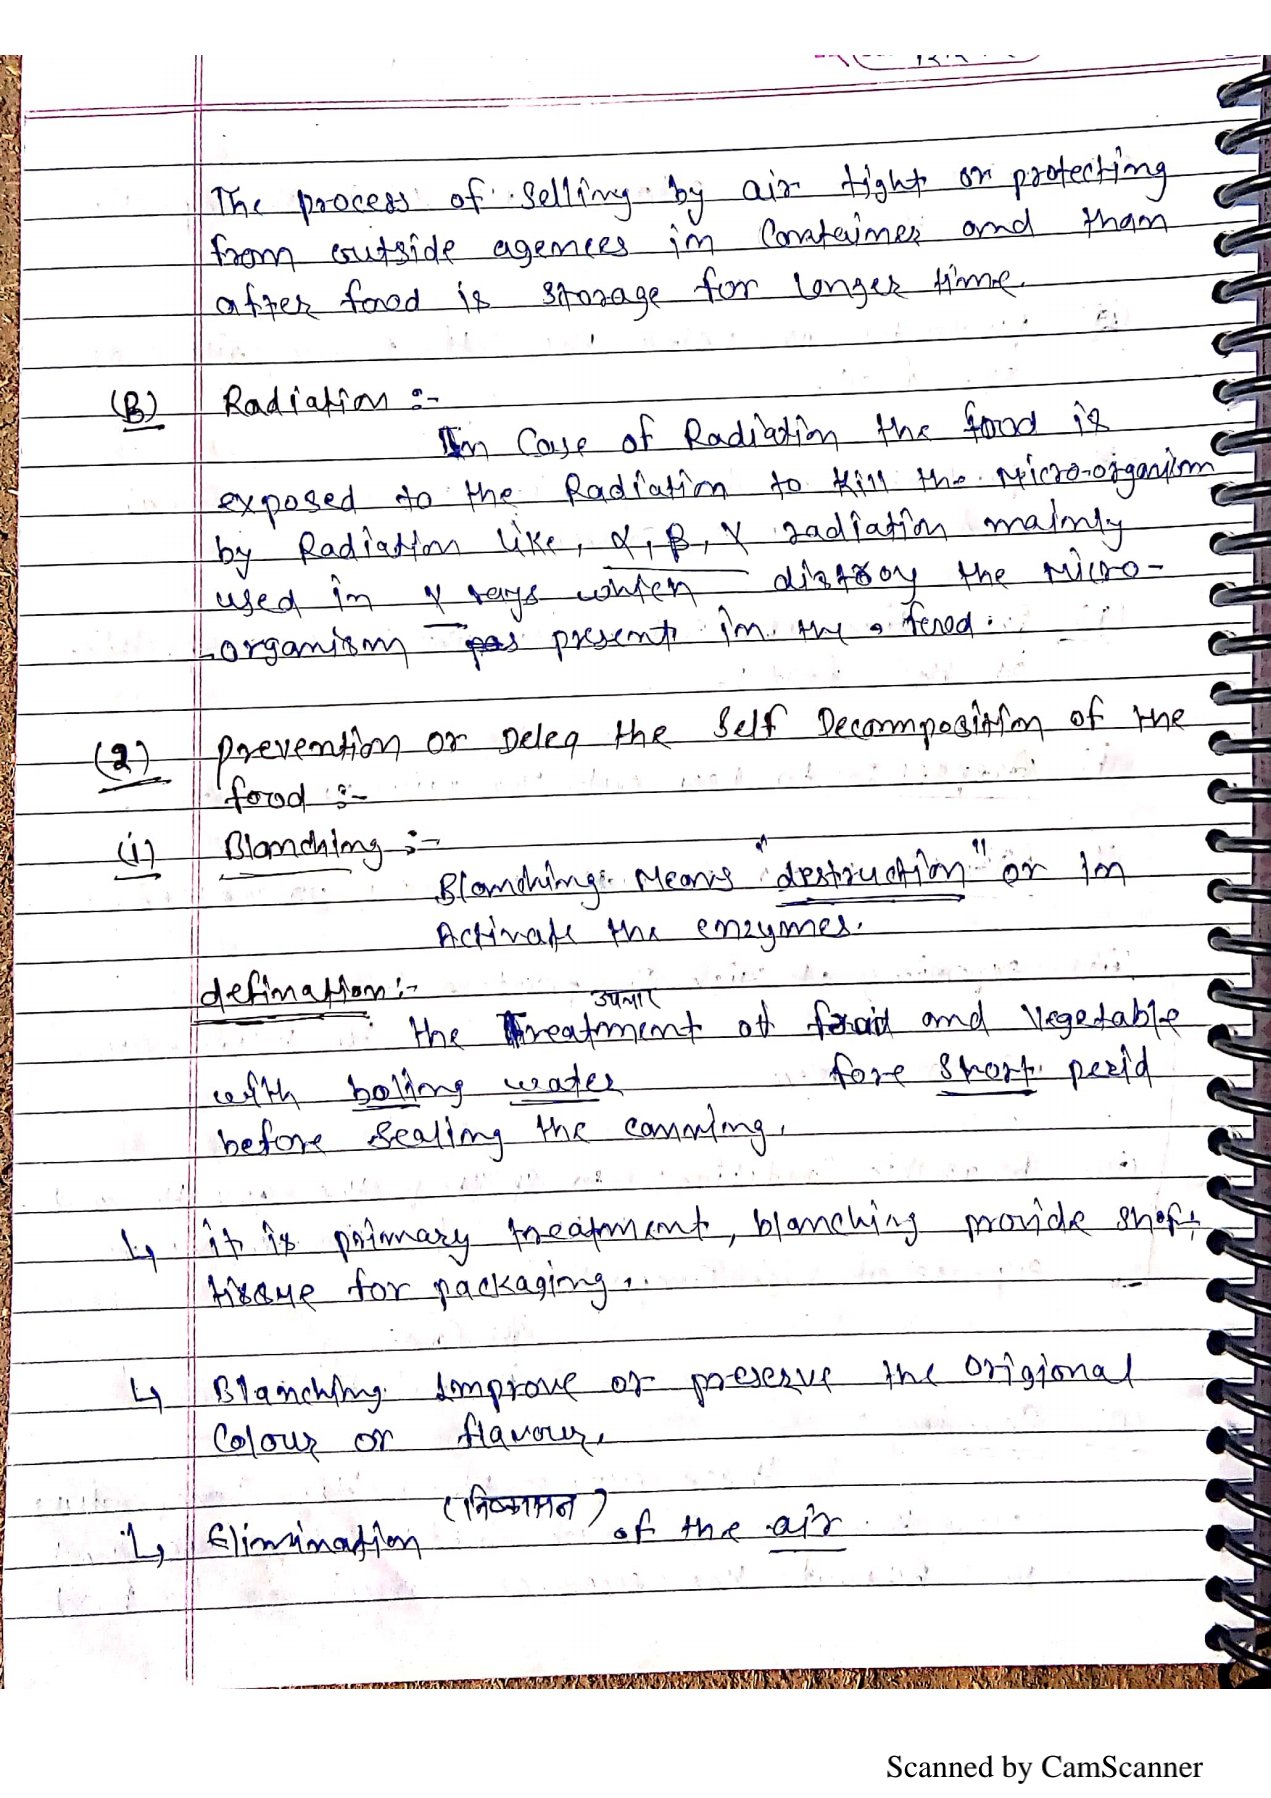 The process of selling by air tight or protecting
from outside agences in Container and than
after food is storage for longer time.
(B) Radiation :-
In Case of Radiation the food is
exposed to the Radiation to kill the Micro-organism
by Radiation like, α, β, γ radiation mainly
used in γ rays which distroy the Micro-
organism present in the food.
(2) Prevention or Deleq the Self Decomposition of the
food :-
(i) Blanching :-
Blanching Means "destruction" or in
Activate the enzymes.
defination :-
उपचार
the Treatment of and Vegetable
with boling water fore short perid
before Sealing the canning.
↳ it is primary treatment, blanching provide shoft
tissue for packaging.
↳ Blanching improve or preserve the Origional
Colour or flavour.
(निष्कासन)
↳ Elimination of the air
Scanned by CamScanner